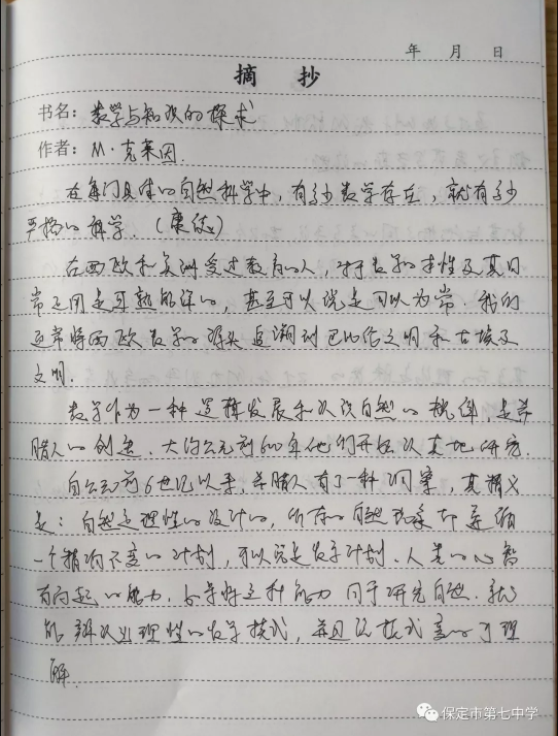 年 月 日
摘 抄
书名：数学与知识的探求
作者：M·克莱因.
在每门具体的自然科学中，有多少数学存在，就有多少
严格的科学.（康德）
在西欧和美洲受过教育的人，对于数学的本性及其日
常应用是耳熟能详的，甚至可以说是习以为常.我们
通常将西欧数学的源头追溯到巴比伦文明和古埃及
文明.
数学作为一种逻辑发展和认识自然的载体，是希
腊人的创造.大约公元前600年他们开始认真地研究.
自公元前6世纪以来，希腊人有了一种洞察，其精义
是：自然是理性的设计的，所有的自然现象都遵循
一个精确不变的计划，可以说是数学计划.人类的心智
有崇高的能力.如果将这种能力用于研究自然.就
能辨认出理性的数学模式，并且该模式变的可理
解.
保定市第七中学